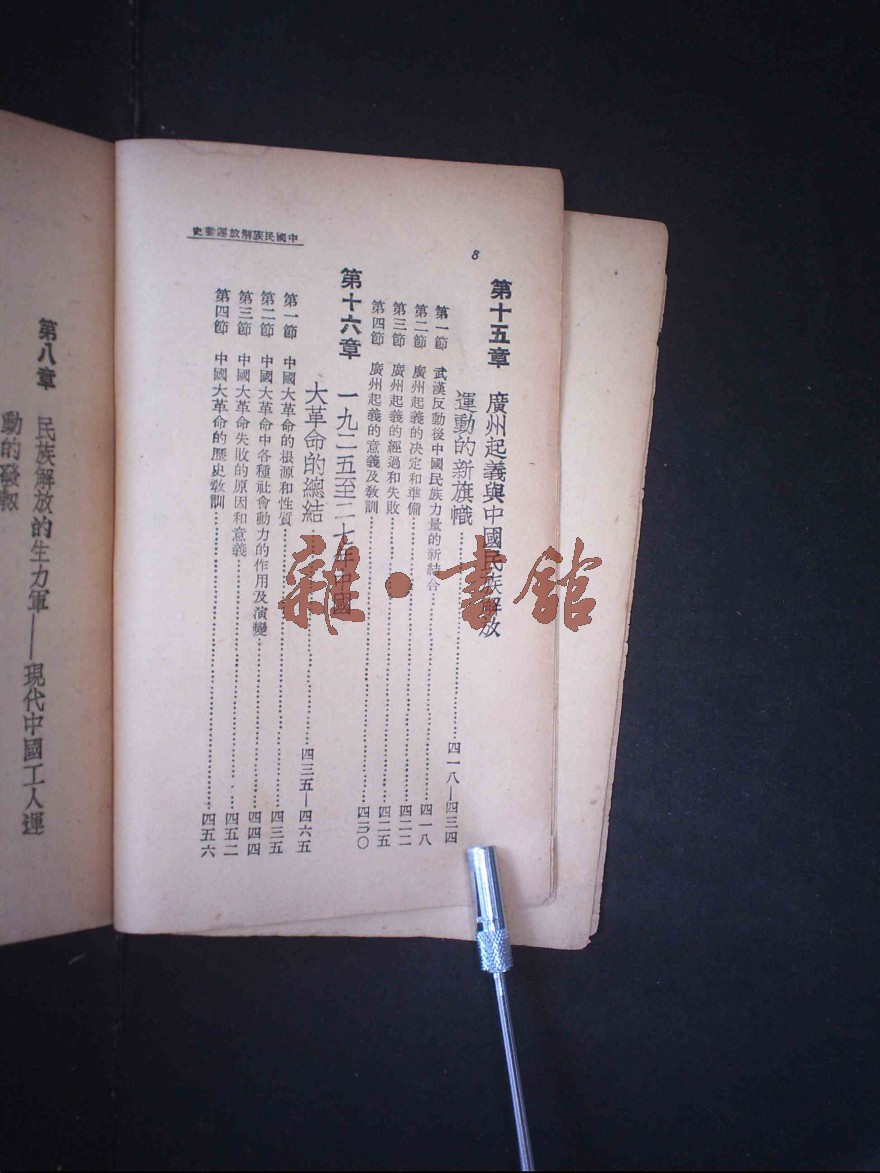 中國民族解放運動史
8
第十五章　廣州起義與中國民族解放
運動的新旗幟……四一八—四三四
第一節　武漢反動後中國民族力量的新結合……四一八
第二節　廣州起義的決定和準備……四二二
第三節　廣州起義的經過和失敗……四二五
第四節　廣州起義的意義及教訓……四三〇
第十六章　一九二五至二七年中國
大革命的總結……四三五—四六五
第一節　中國大革命的根源和性質……四三五
第二節　中國大革命中各種社會動力的作用及演變……四四四
第三節　中國大革命失敗的原因和意義……四五二
第四節　中國大革命的歷史教訓……四五六
第八章　民族解放的生力軍——現代中國工人運
動的發
雜·書館